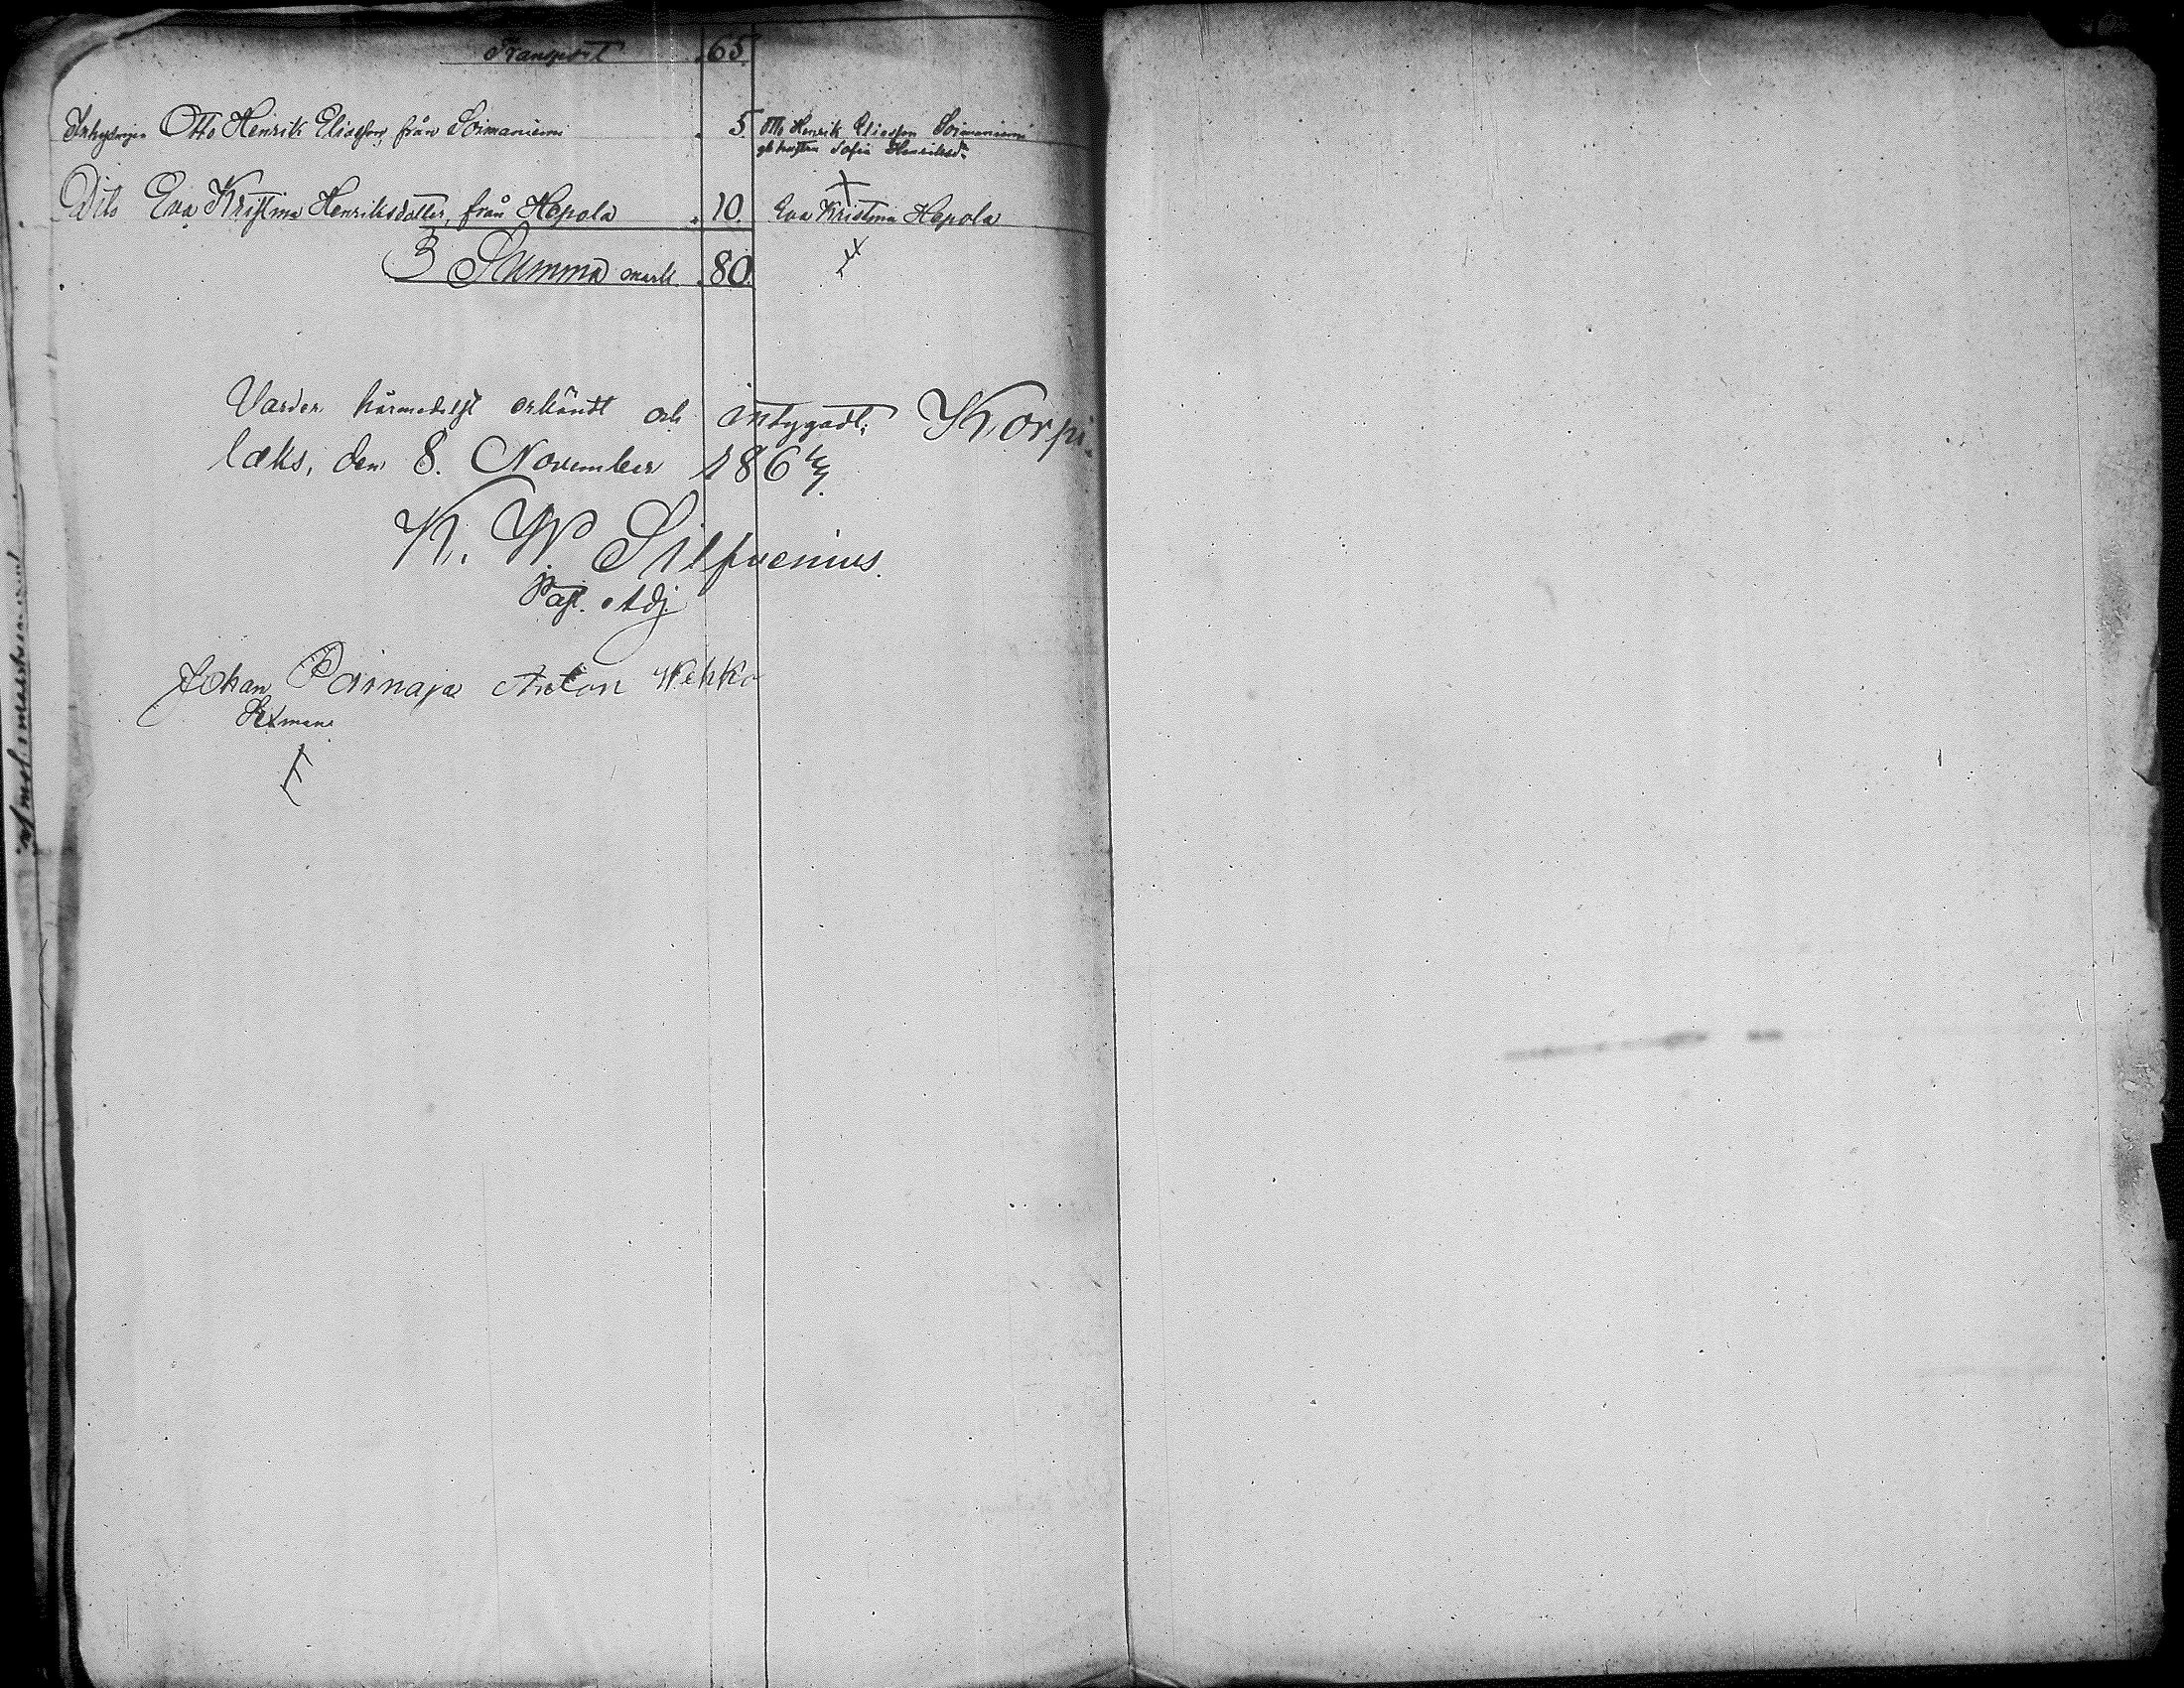 Transport 65.
Inhysingen Otto Henrik Eliasson, från Soimaniemi 5. Otto Henrik Eliasson Soimaniemi
Sofia Henriksdr
Dito Eva Kristina Henriksdotter, från Hepola 10. Eva Kristina Hepola
Summa mark 80.
Varder härmedelst erkändt och intygadt; Korpi-
laks, den 8. November 186
K. W. Silfvenius.
Past. Adj
Johan Päinaja Anton Wehko
Sexman